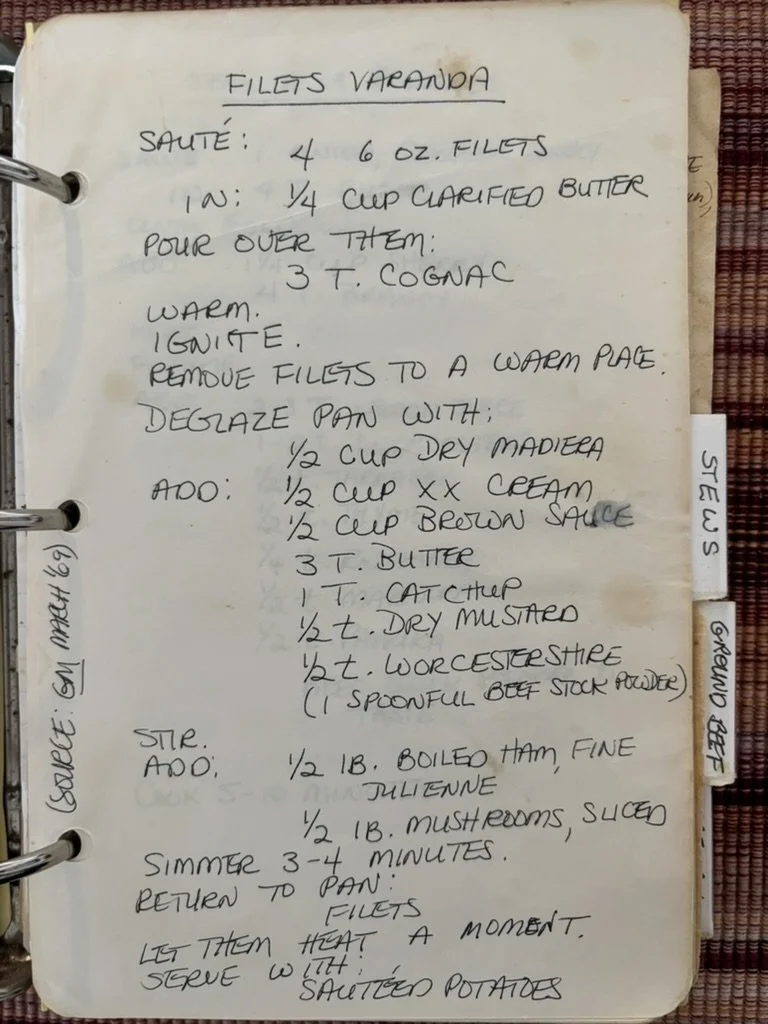 FILETS VARANDA
SAUTÉ: 4 6 OZ. FILETS
IN: 1/4 CUP CLARIFIED BUTTER
POUR OVER THEM:
3 T. COGNAC
WARM.
IGNITE.
REMOVE FILETS TO A WARM PLACE.
DEGLAZE PAN WITH:
1/2 CUP DRY MADIERA
ADD: 1/2 CUP XX CREAM
1/2 CUP BROWN SAUCE
3 T. BUTTER
1 T. CATCHUP
1/2 t. DRY MUSTARD
1/2 t. WORCESTERSHIRE
(1 SPOONFUL BEEF STOCK POWDER)
STIR.
ADD: 1/2 lB. BOILED HAM, FINE
JULIENNE
1/2 lB. MUSHROOMS, SLICED
SIMMER 3-4 MINUTES.
RETURN TO PAN:
FILETS
LET THEM HEAT A MOMENT.
SERVE WITH:
SAUTÉED POTATOES
(SOURCE: GM MARCH '69)
STEWS
GROUND BEEF